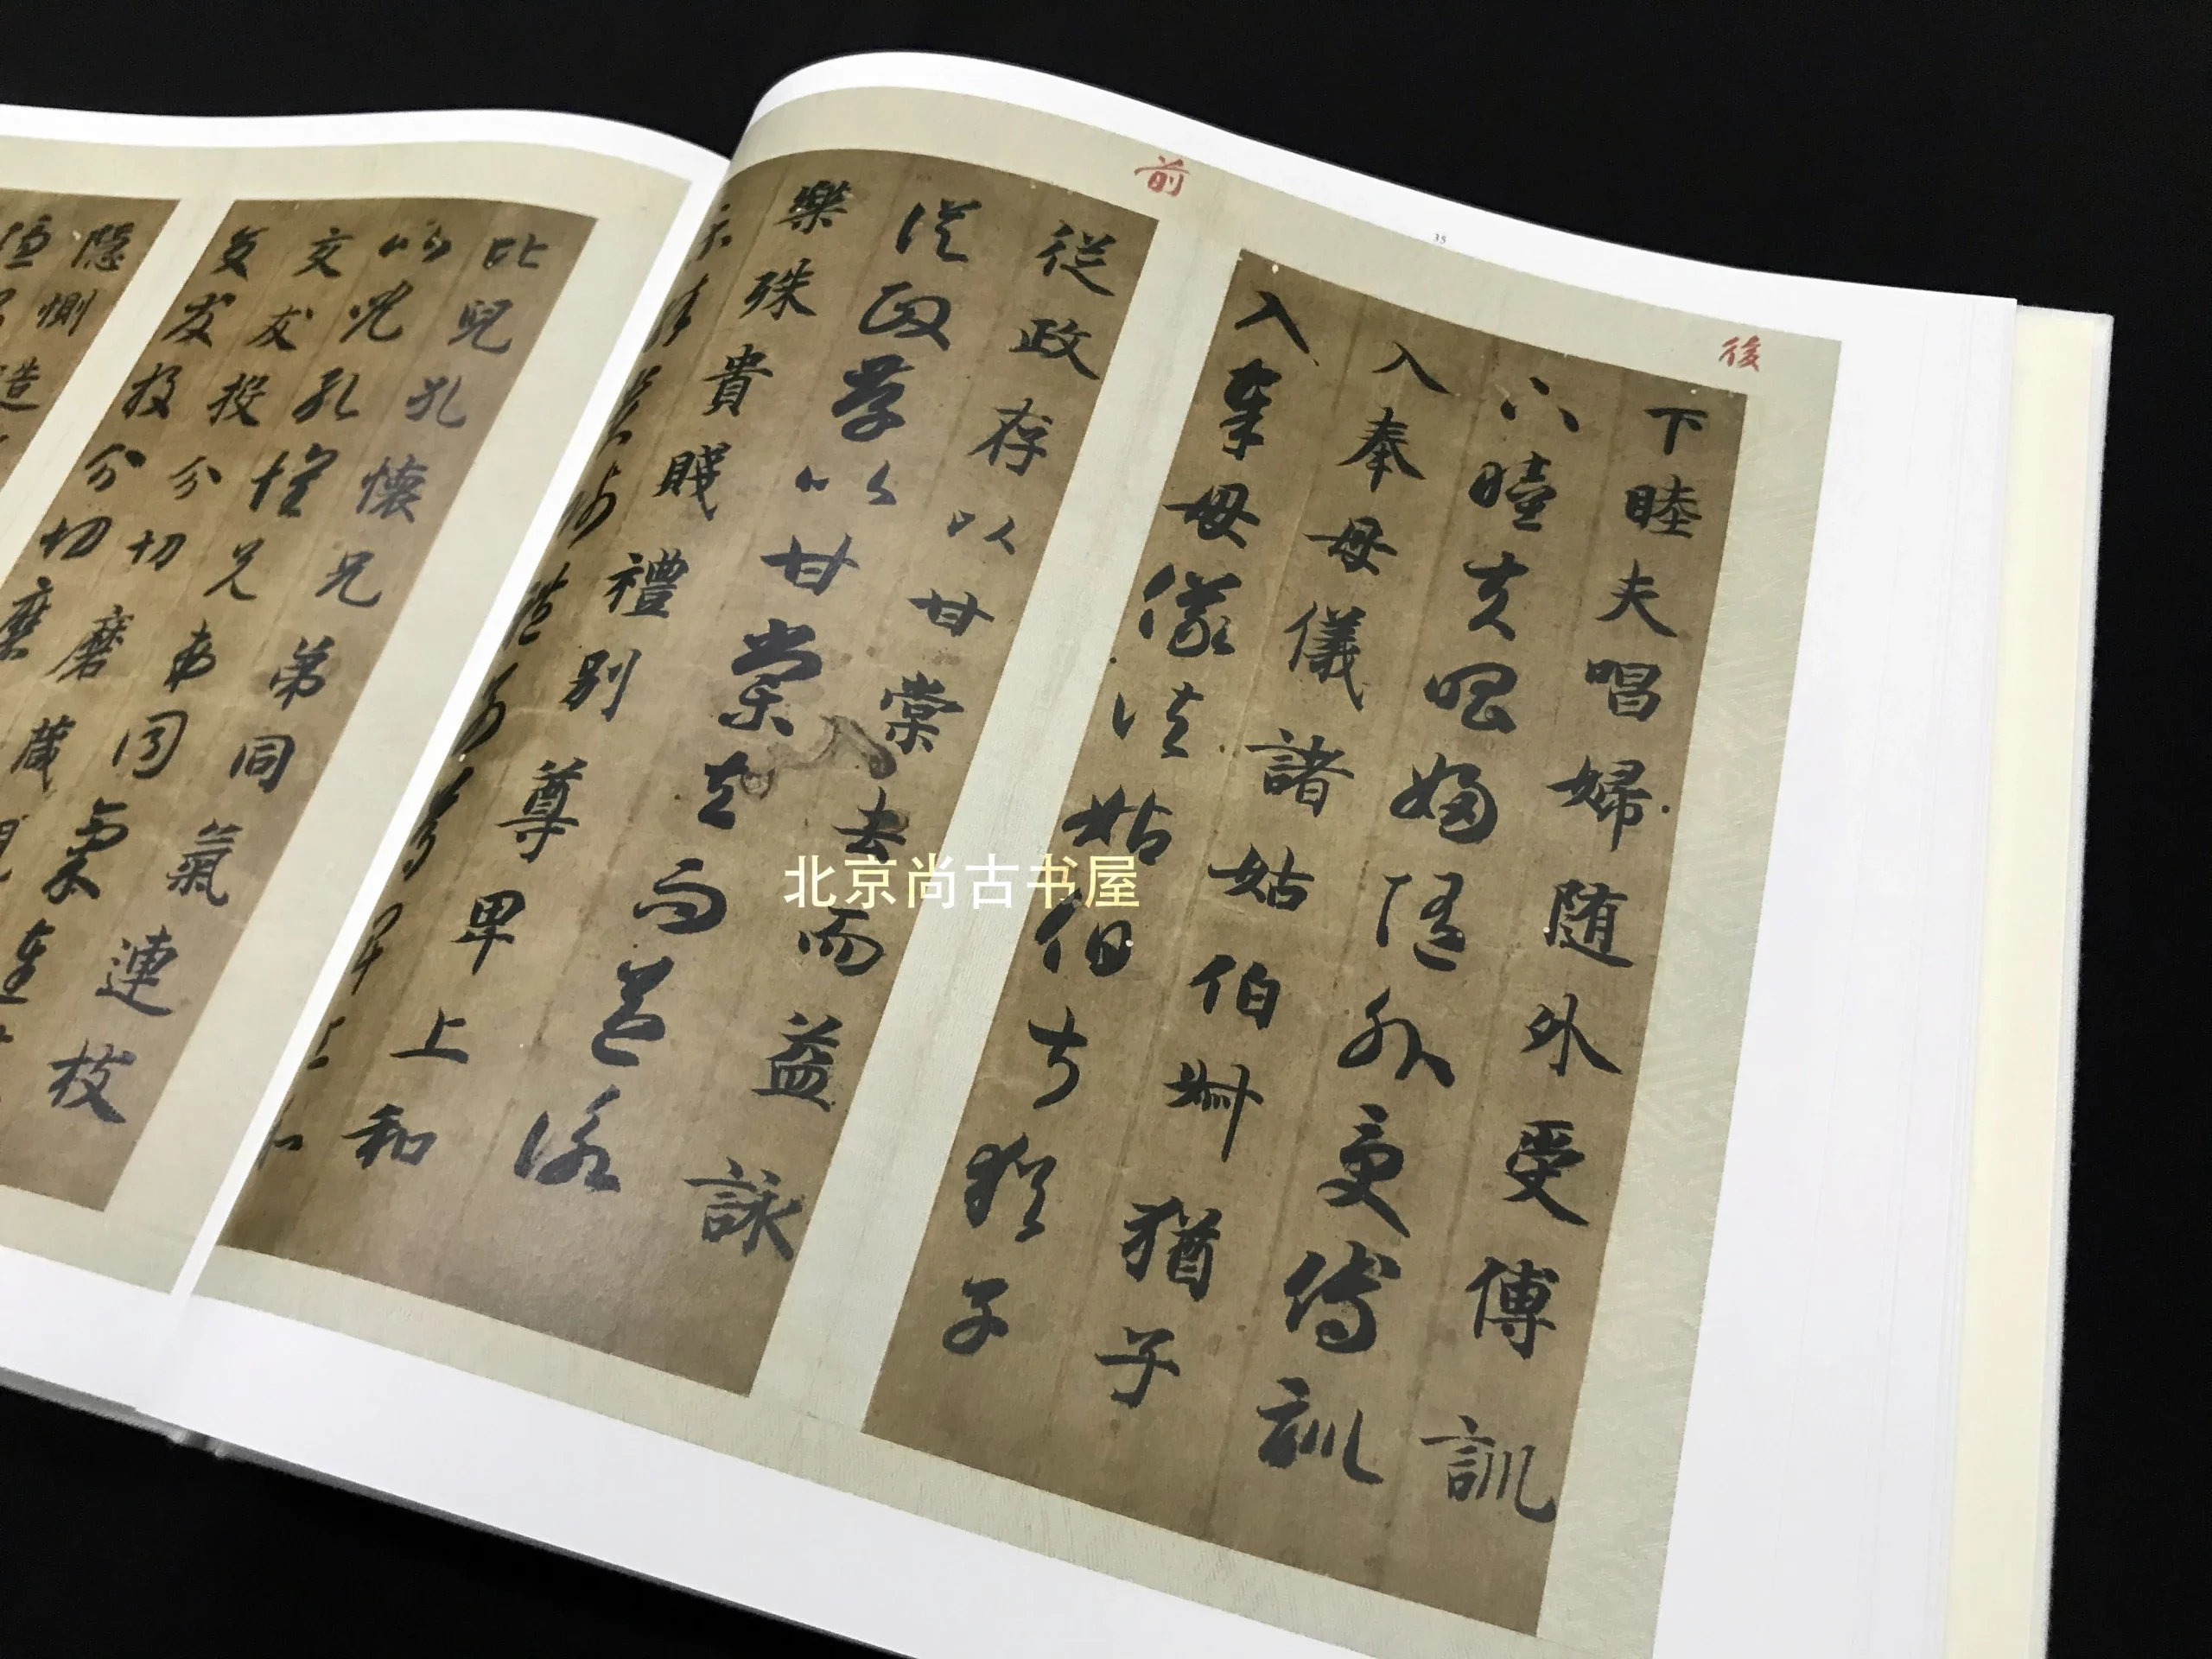 後
35
前
下睦夫唱婦随外受傅訓
下睦夫唱婦随外受傅訓
入奉母儀諸姑伯叔猶子
入奉母儀諸姑伯叔猶子
從政存以甘棠去而益詠
從政存以甘棠去而益詠
樂殊貴賤禮別尊卑上和
比兒孔懷兄弟同氣連枝
比兒孔懷兄弟同氣連
交友投分切磨箴
交友投分切磨
隱惻造
北京尚古书屋